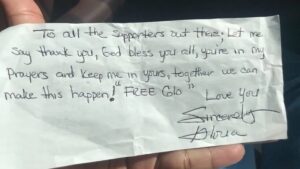 To all the Supporters out there. Let me
Say thank you, God bless you all, you're in my
Prayers and keep me in yours, together we can
make this happen! "FREE Golo"
Love you
Sincerely
Gloria